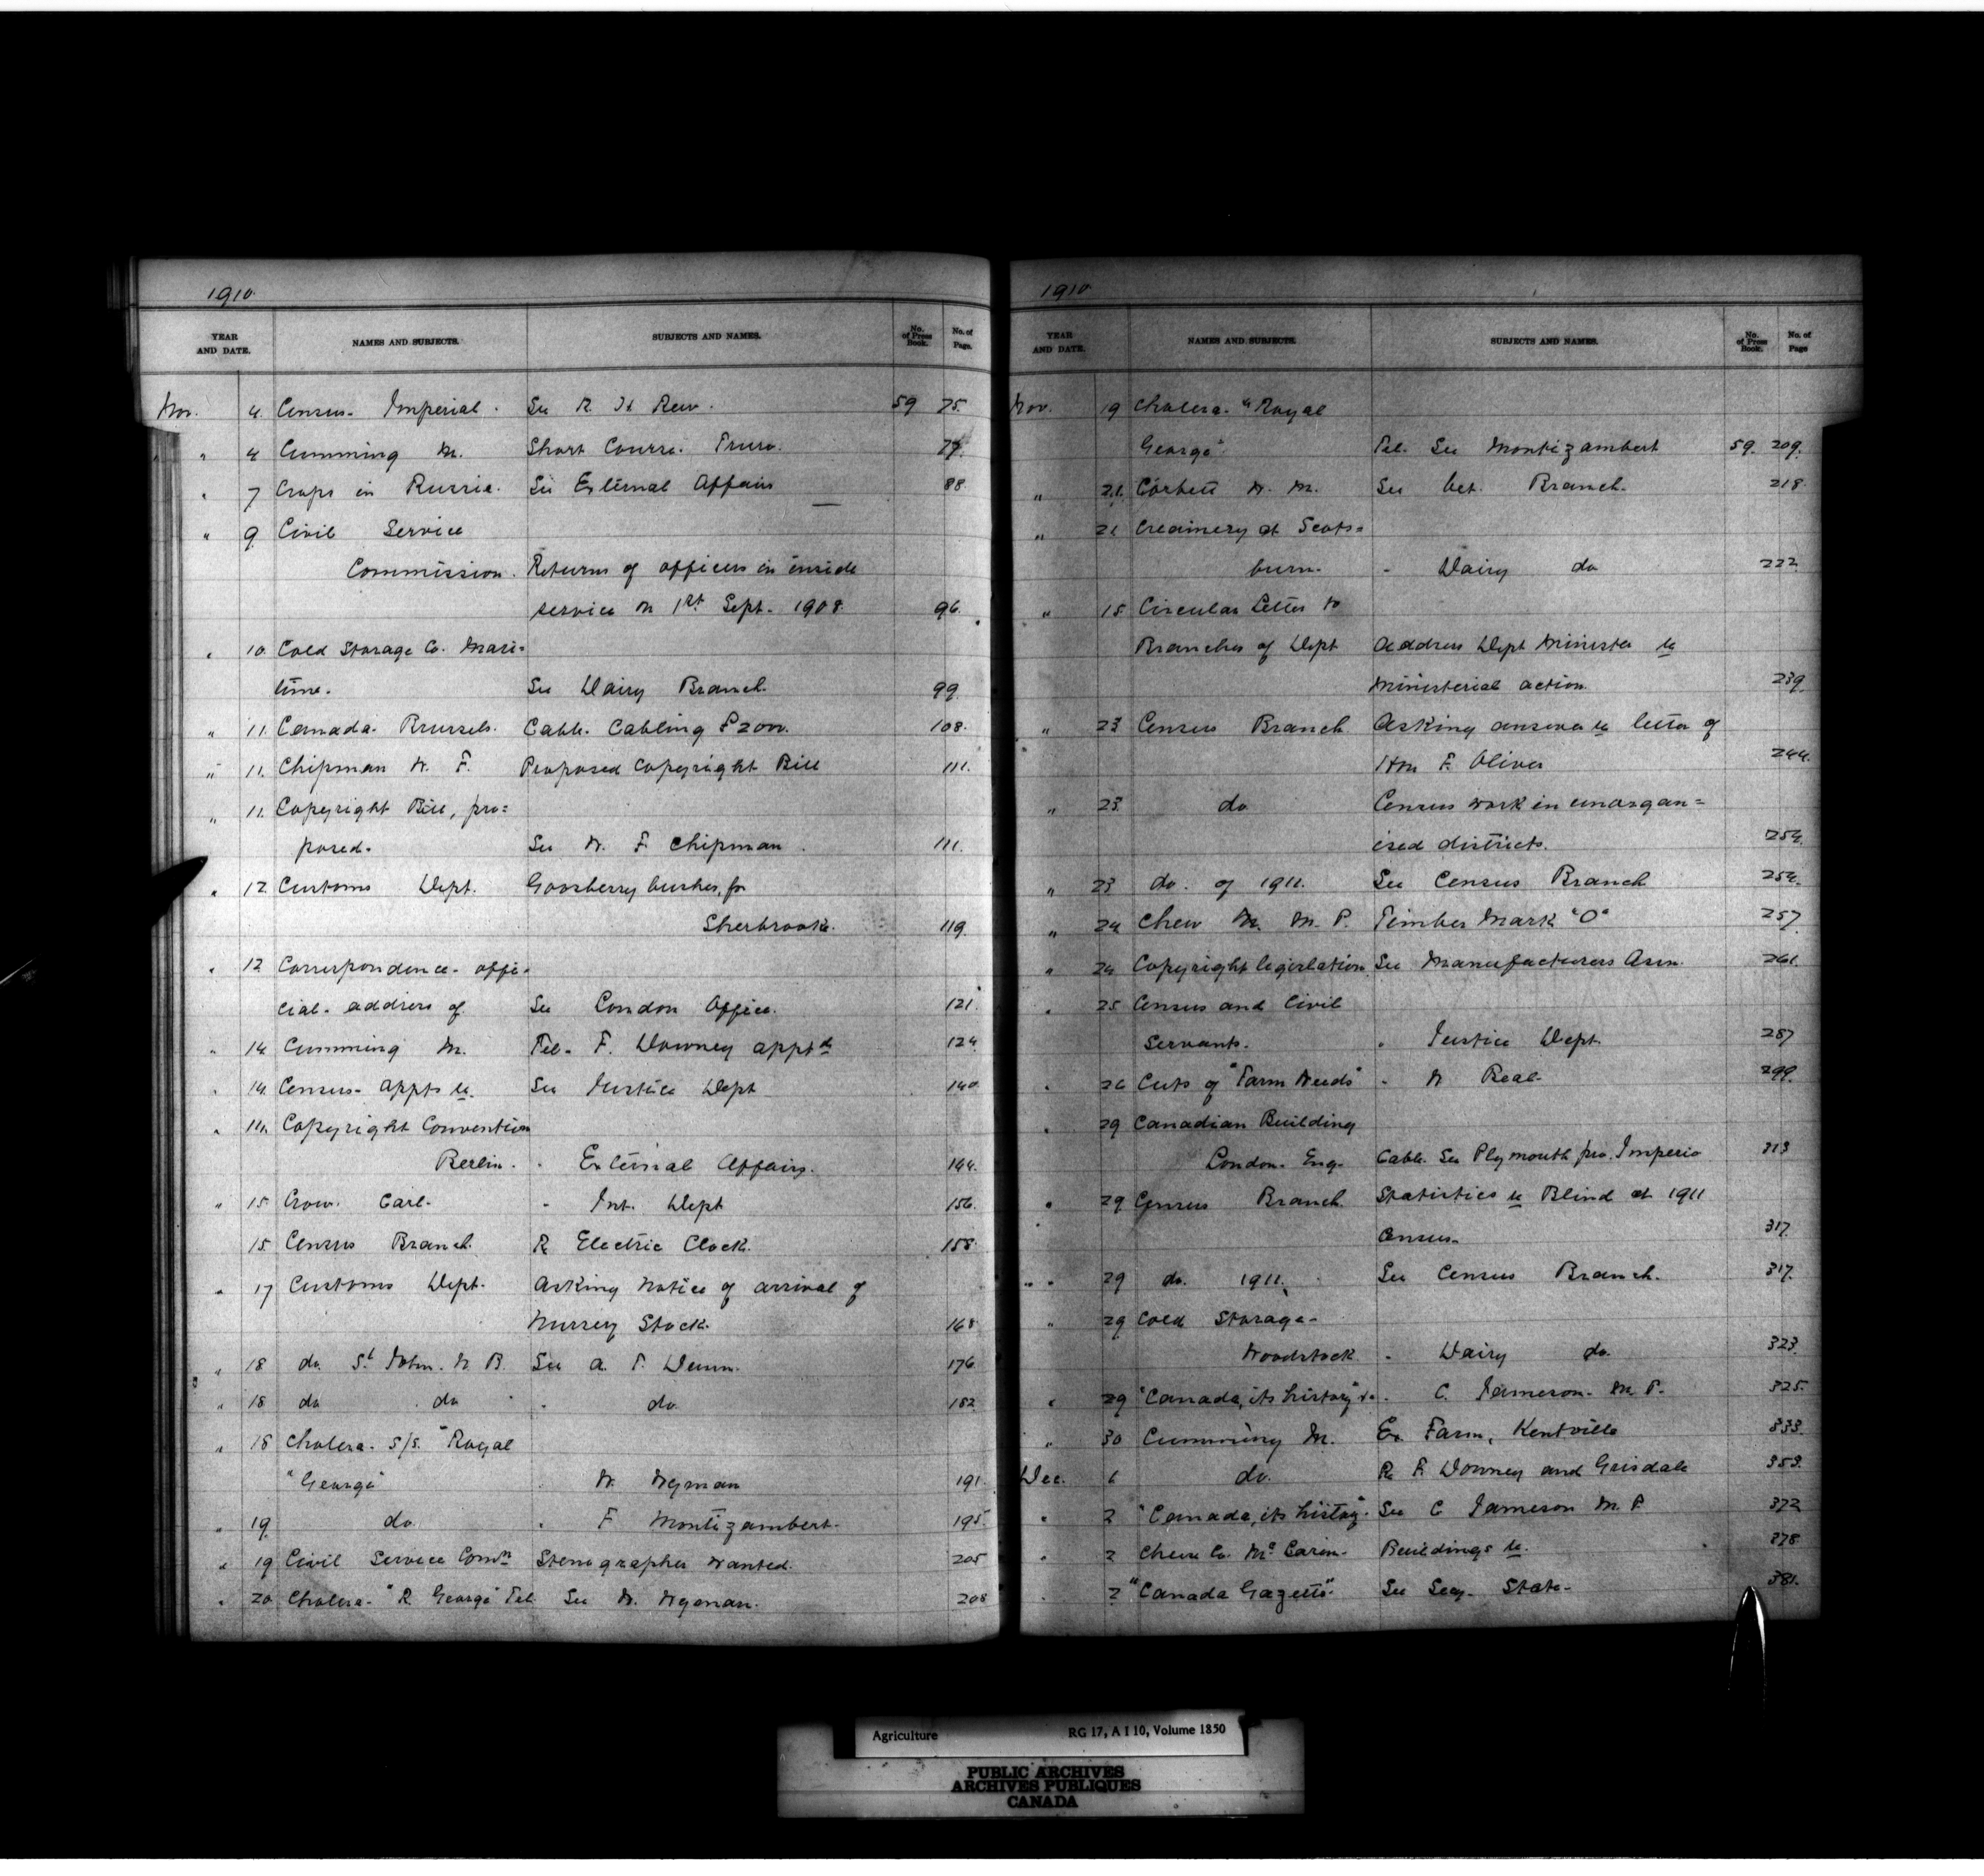 1910
YEAR AND DATE. NAMES AND SUBJECTS. SUBJECTS AND NAMES. No. of Press Book. No. of Page.
Nov. 4. Census- Imperial. See R. H. Rew. 59 75.
" 4 Cumming M. Short Course. Truro. 77.
" 7 Crops in Russia. See External Affairs 88
" 9. Civil Service
Commission. Returns of officers in inside
service on 1st Sept. 1908. 96.
" 10. Cold Storage Co. Mari=
time. See Dairy Branch. 99.
" 11. Canada- Brussels. Cable. Cabling £200. 108.
" 11. Chipman W. F. Proposed Copyright Bill 111.
" 11. Copyright Bill, pro=
posed. See W. F. Chipman. 111.
" 12 Customs Dept. Goosberry bushes, for
Sherbrooke. 119.
" 12 Correspondence- offi-
cial- address of See London Office. 121.
" 14. Cumming M. Tel. F. Downey apptd 124.
" 14. Census- appts to. See Justice Dept 140.
" 14. Copyright Convention
Berlin. " External Affairs. 144.
" 15 Crow. Carl- " Int. Dept 156.
15 Census Branch. Re Electric Clock. 158.
" 17 Customs Dept. Asking notice of arrival of
Nursery Stock. 168
" 18 do. St John. N. B. See A. T. Dunn. 176.
" 18 do do " do. 182.
" 18 Cholera- S/S. "Royal
"George" " W. Wyman 191.
" 19. do. " F Montizambert. 195.
" 19 Civil Service Comn Stenographer wanted. 205
" 20. Cholera- "R. George" Tel See W. Wyman. 208
1910
YEAR AND DATE. NAMES AND SUBJECTS. SUBJECTS AND NAMES. No. of Press Book. No. of Page
Nov. 19 Cholera- "Royal
George" Tel. See Montizambert 59. 209.
" 21. Corbett W. M. See Vet. Branch. 218.
" 21 Creamery at Scots=
burn- " Dairy do 222.
" 15 Circular Letter to
Branches of Dept Address Dept Minister to
Ministerial action. 239.
" 23 Census Branch Asking answer to letter of
Hon F. Oliver 244.
" 23. do Census work in unorgan=
ised districts. 254.
" 23 do. of 1911. See Census Branch 254.
" 24 Chew M. M. P. Timber Mark "O" 257.
" 24 Copyright legislation. See Manufacturers Assn. 261.
" 25 Census and Civil
Servants. " Justice Dept. 287
" 26 Cuts of "Farm Weeds" " W Beal- 299.
" 29 Canadian Building
London. Eng- Cable. See Plymouth pro. Imperio 313
" 29 Census Branch Statistics to Blind at 1911
Census- 317.
" " 29 do. 1911. See Census Branch. 317.
" 29 Cold Storage-
Woodstock " Dairy do. 323.
" 29 "Canada, its history" &c. " C. Jameson- M. P. 325.
" 30 Cumming M. Ex. Farm, Kentville 333.
Dec. 1 do. Re F. Downey and Grisdale 353.
" 2 "Canada, its history". See C Jameson M. P. 372
" 2 Chew Co. Buildings to. 378.
" 2 "Canada Gazette". See Secy- State- 381.
Agriculture RG 17, A I 10, Volume 1850
PUBLIC ARCHIVES
ARCHIVES PUBLIQUES
CANADA